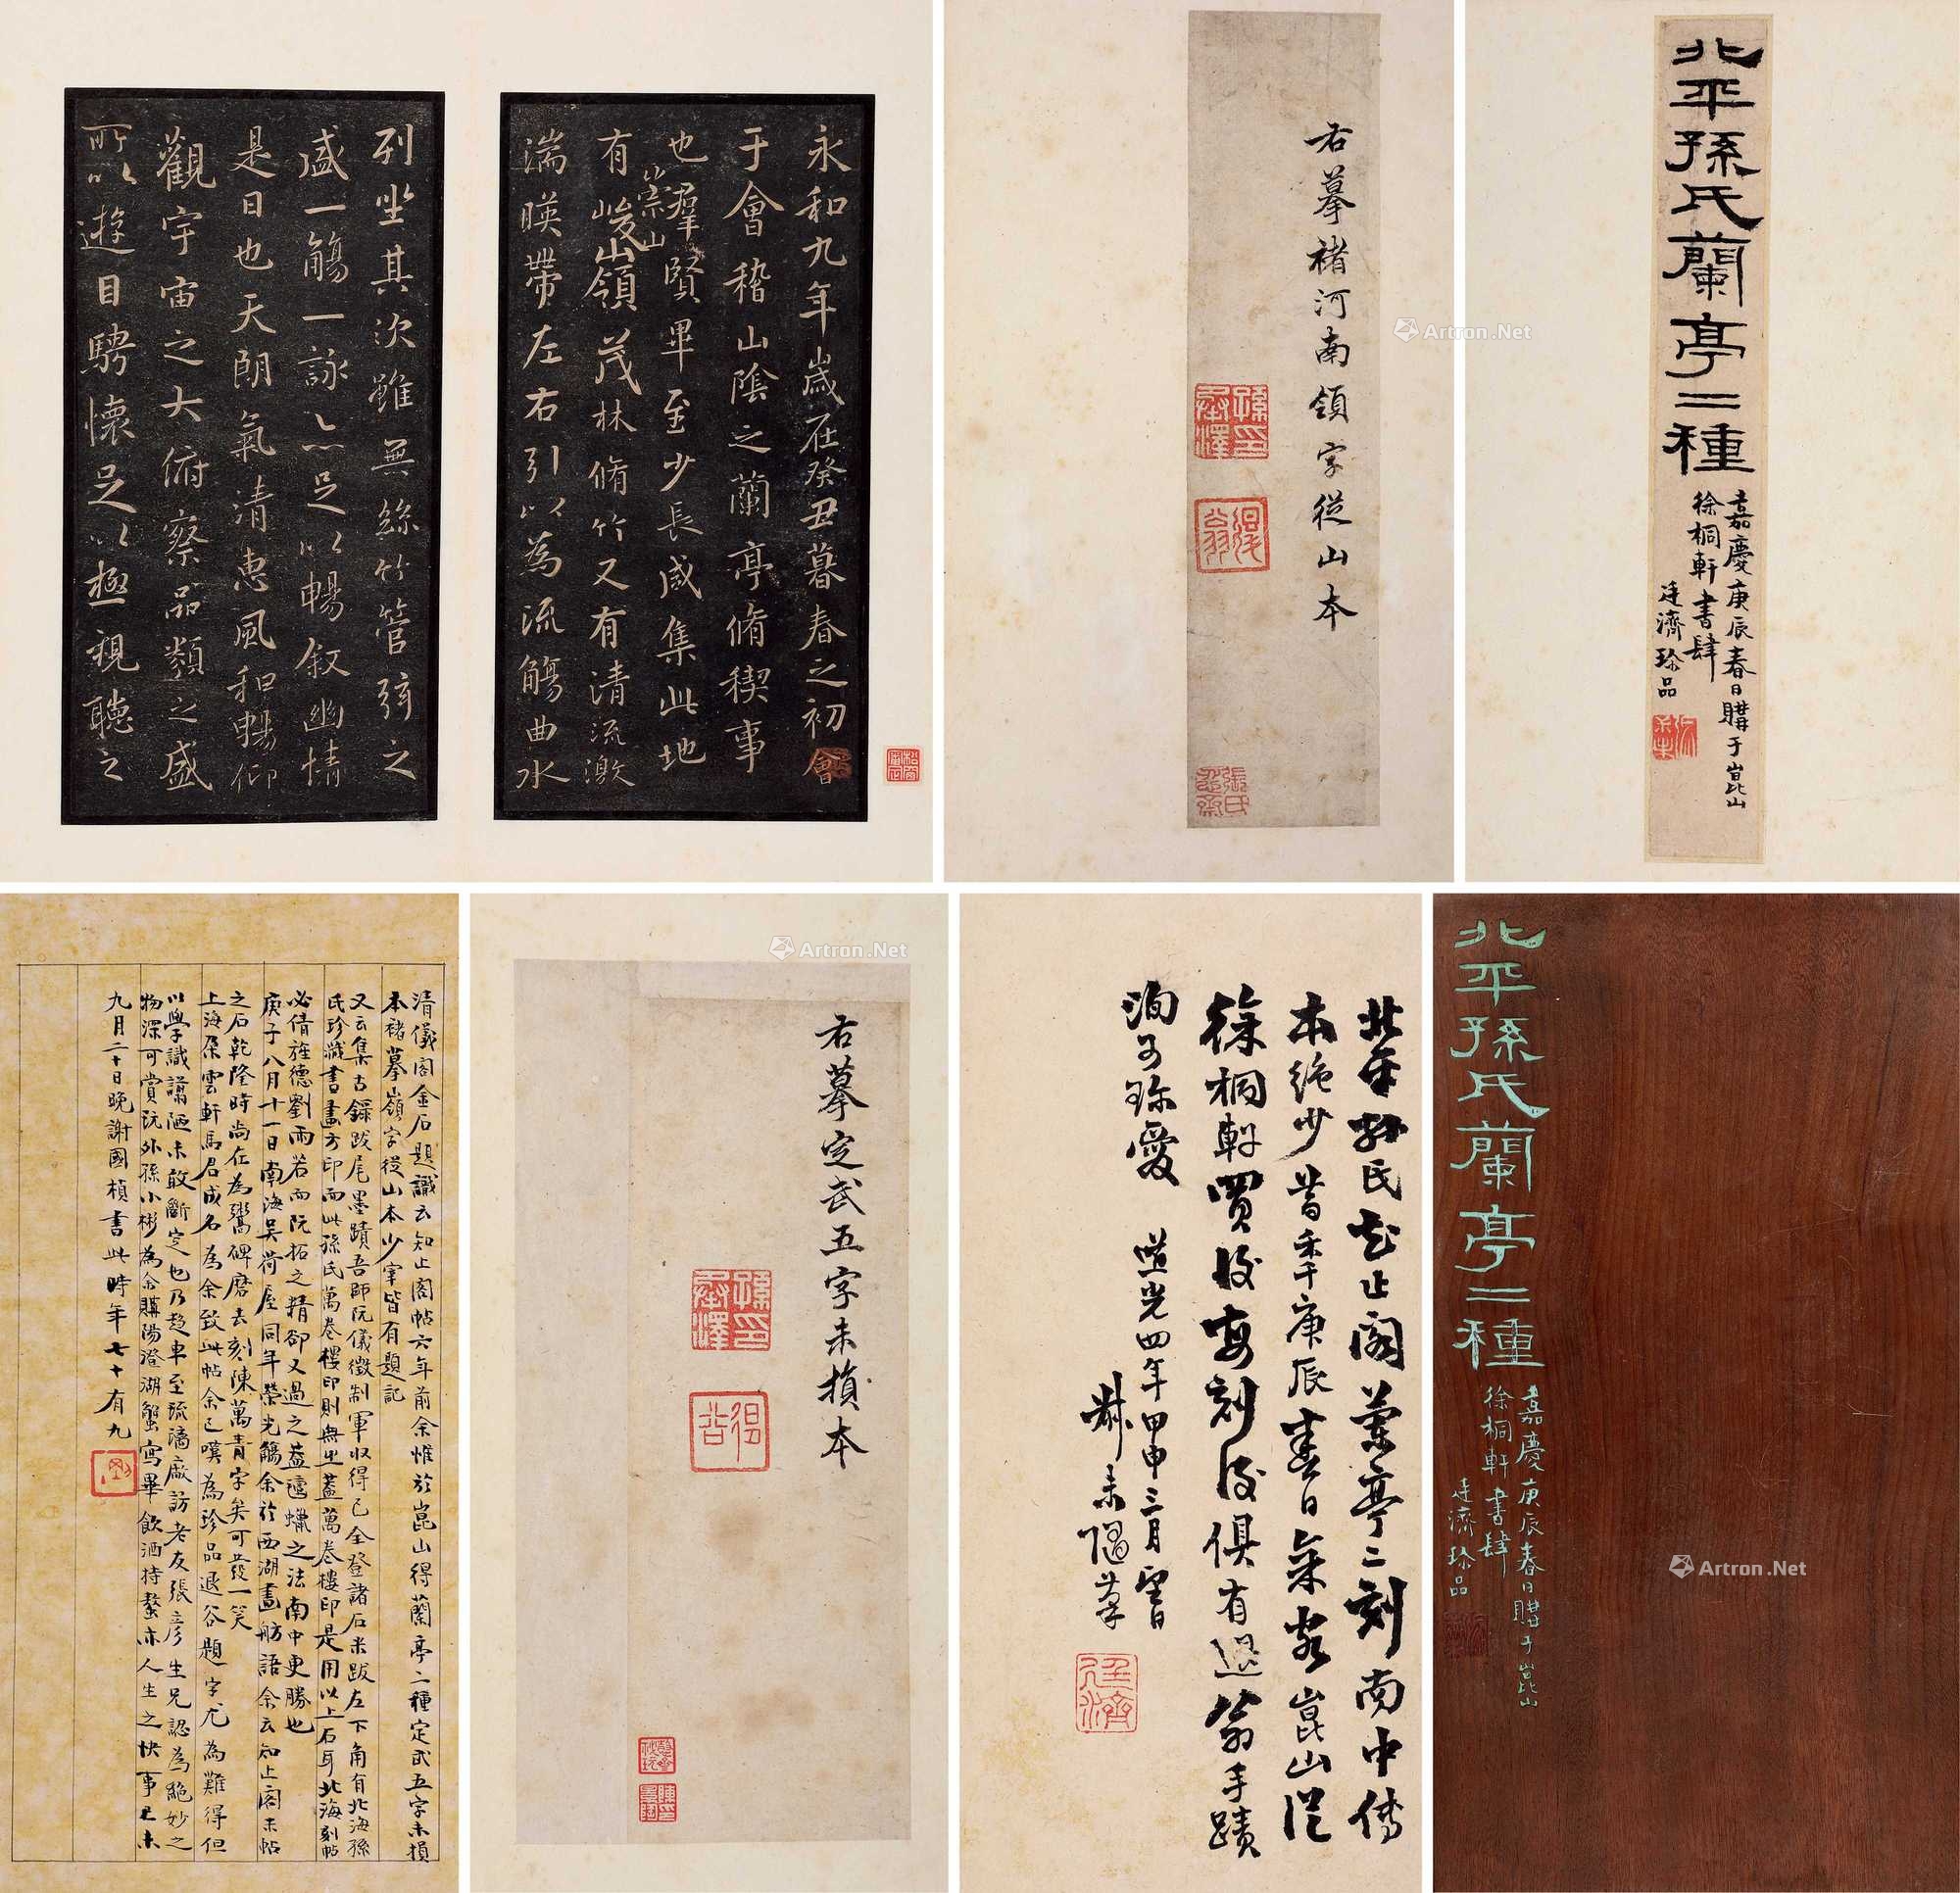 北平孫氏蘭亭二種
嘉慶庚辰春日購于崑山
徐桐軒書肆
廷濟珍品
右摹褚河南領字從山本
孫印承澤
退谷
張氏
永和九年歲在癸丑暮春之初會
于會稽山陰之蘭亭脩稧事
也羣賢畢至少長咸集此地
有崇山峻嶺茂林脩竹又有清流激
湍暎帶左右引以為流觴曲水
列坐其次雖無絲竹管弦之
盛一觴一詠亦足以暢叙幽情
是日也天朗氣清惠風和暢仰
觀宇宙之大俯察品類之盛
所以遊目騁懷足以極視聽之
北平孫氏蘭亭二種
嘉慶庚辰春日購于崑山
徐桐軒書肆
廷濟珍品
北平孫氏知止閣蘭亭二刻南中傳
本絶少昔年庚辰春日余客崑山從
徐桐軒買後刻後俱有退翁手蹟
洵可珍愛
道光四年甲申三月
叔未
廷濟
右摹定武五字未損本
孫印承澤
退谷
清儀閣金石題識云知止閣帖六年前余惟於崑山得蘭亭二種定武五字未損
本褚摹嶺字從山本少宰皆有題記
又云集古錄跋尾墨蹟吾師阮儀徵制軍收得已全登諸石米跋左下角有北海孫
氏珍藏書畫方印而此孫氏萬卷樓印則無之蓋萬卷樓印是用以上石耳北海刻帖
必倩旌德劉雨若而阮拓之精卻又過之蓋氊蠟之法南中更勝也
庚子八月十一日南海吳荷屋同年榮光觴余於西湖畫舫語余云知止閣米帖
之石乾隆時尚在為鬻碑磨去刻陳萬青字矣可發一笑
上海朵雲軒馬君成名為余致此帖余已嘆為珍品退谷題字尤為難得但
以學識譾陋未敢斷定也乃趨車至琉璃廠訪老友張彥生兄認為絕妙之
物深可賞玩外孫小彬為余購陽澄湖蟹寫畢飲酒持螯亦人生之快事己未
九月二十日晚謝國楨書此時年七十有九
Artron.Net
Artron.Net
Artron.Net